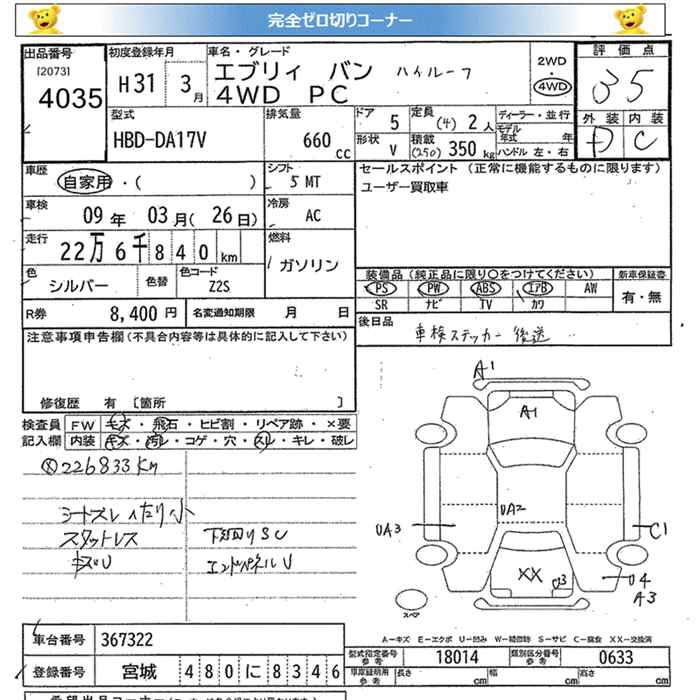 完全ゼロ切りコーナー
出品番号 初度登録年月 車名・グレード 2WD 評価点
[2073] 4035 H31 3月 エブリィ バン ハイルーフ 4WD 35
4WD PC
外装 内装
D C
型式 排気量 ドア 定員 ディーラー・並行
HBD-DA17V 660cc 5 (4) 2人 モデル年式 年
形状 積載
V (250) 350kg ハンドル 左・右
車歴 シフト セールスポイント (正常に機能するものに限ります)
自家用・( ) 5MT ユーザー買取車
車検 冷房
09年 03月(26日) AC
走行 燃料
22万6千840km ガソリン
色 色替 色コード 装備品(純正品に限り○をつけてください) 新車保証書
シルバー Z2S PS PW ABS エアB AW 有・無
SR ナビ TV カワ
R券 8,400円 名変通知期限 月 日 後日品
車検ステッカー後送
注意事項申告欄(不具合内容等は具体的に記入して下さい)
修復歴 有 [箇所 ]
検査員 FW キズ・飛石・ヒビ割・リペア跡・×要
記入欄 内装 キズ・汚れ・コゲ・穴・スレ・キレ・破レ
226833Km
シートズレ ヘたり小
スタットレス 下廻りSC
キズU エンドパネルU
A1
A1
UA2
UA3
C1
XX
U3
U4
A3
スペア
A-キズ E-エクボ U-凹み W-補修跡 S-サビ C-腐食 XX-交換済
車台番号 367322
型式指定番号 参考 18014 類別区分番号 参考 0633
登録番号 宮城 480に8346
車庫証明用 参考 長さ cm 幅 cm 高さ cm